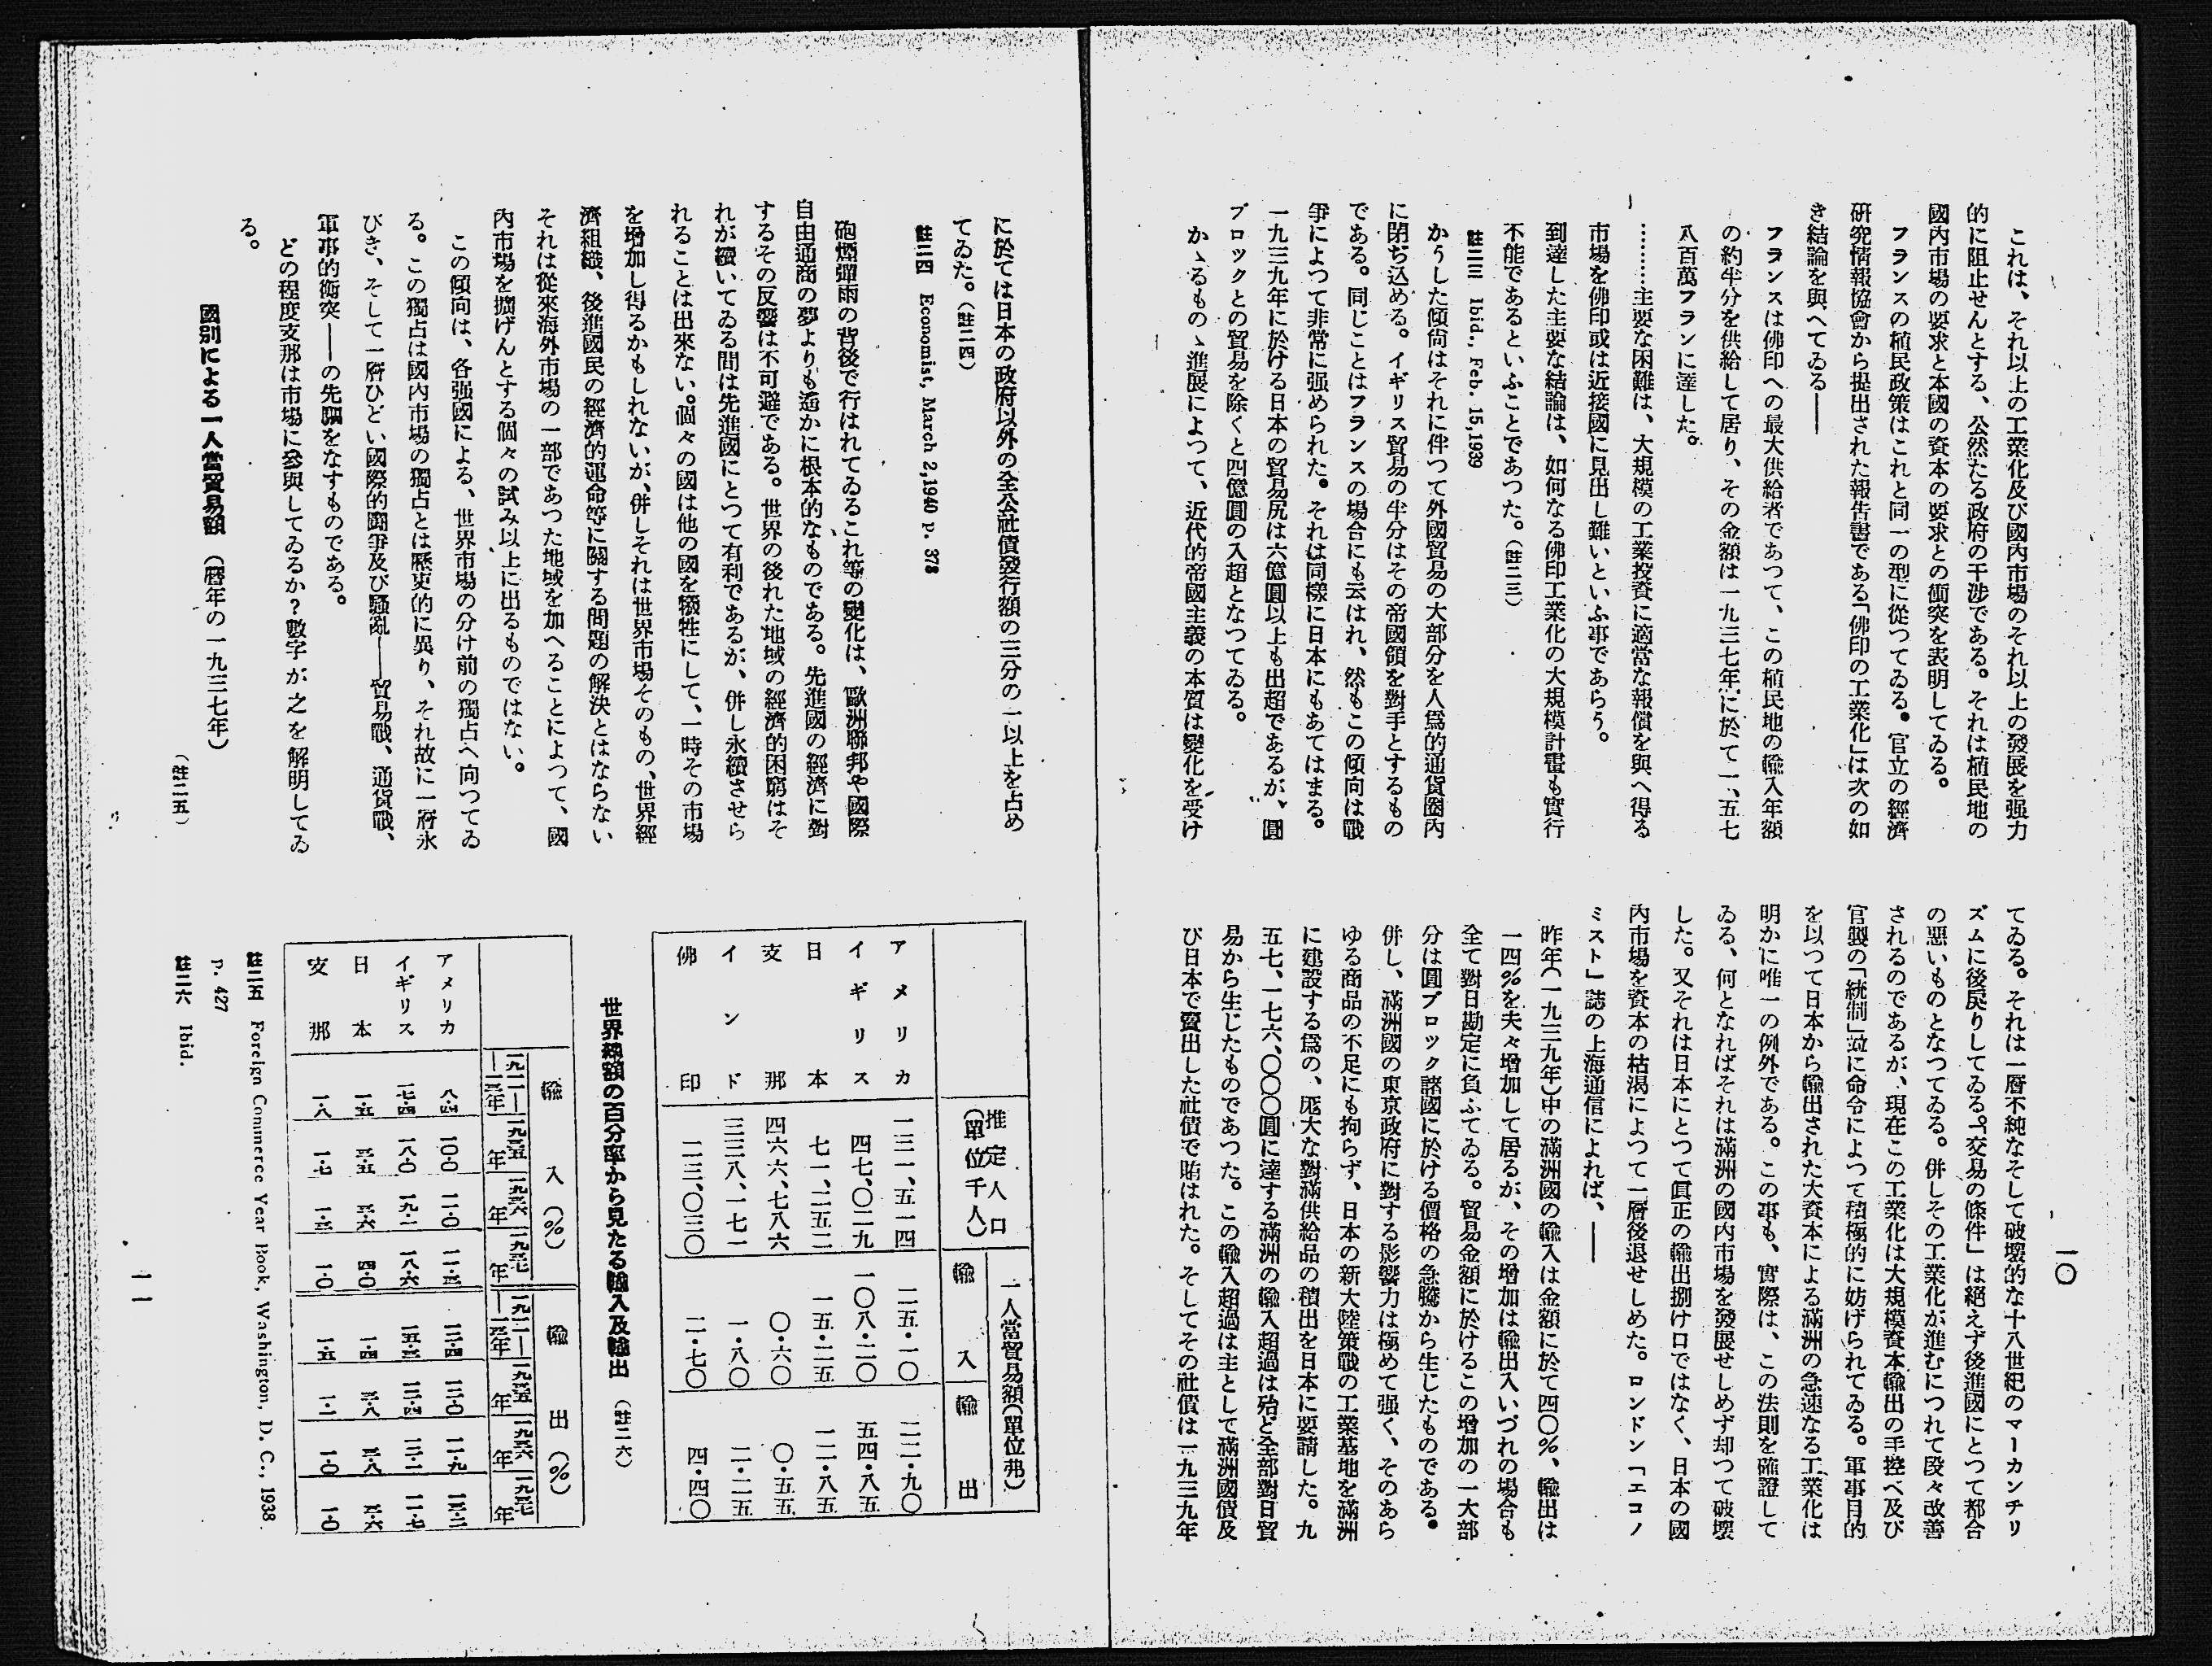 一〇
これは、それ以上の工業化及び國內市場のそれ以上の發展を强力
的に阻止せんとする、公然たる政府の干渉である。それは植民地の
國內市場の要求と本國の資本の要求との衝突を表明してゐる。
フランスの植民政策はこれと同一の型に從つてゐる。官立の經濟
硏究情報協會から提出された報告書である「佛印の工業化」は次の如
き結論を與へてゐる――
フランスは佛印への最大供給者であつて、この植民地の輸入年額
の約半分を供給して居り、その金額は一九三七年に於て一、五七
八百萬フランに達した。
…………主要な困難は、大規模の工業投資に適當な報償を與へ得る
市場を佛印或は近接國に見出し難いといふ事であらう。
到達した主要な結論は、如何なる佛印工業化の大規模計畫も實行
不能であるといふことであつた。（註二三）
註二三 Ibid., Feb. 15,1939
かうした傾向はそれに伴つて外國貿易の大部分を人爲的通貨圈內
に閉ぢ込める。イギリス貿易の半分はその帝國領を對手とするもの
である。同じことはフランスの場合にも云はれ、然もこの傾向は戰
爭によつて非常に强められた。それは同樣に日本にもあてはまる。
一九三九年に於ける日本の貿易尻は六億圓以上も出超であるが、圓
ブロックとの貿易を除くと四億圓の入超となつてゐる。
かゝるものゝ進展によつて、近代的帝國主義の本質は變化を受け
てゐる。それは一層不純なそして破壞的な十八世紀のマーカンチリ
ズムに後戾りしてゐる。「交易の條件」は絕えず後進國にとつて都合
の惡いものとなつてゐる。併しその工業化が進むにつれて段々改善
されるのであるが、現在この工業化は大規模資本輸出の手控へ及び
官製の「統制」並に命令によつて積極的に妨げられてゐる。軍事目的
を以つて日本から輸出された大資本による滿洲の急速なる工業化は
明かに唯一の例外である。この事も、實際は、この法則を確證して
ゐる、何となればそれは滿洲の國內市場を發展せしめず却つて破壞
した。又それは日本にとつて眞正の輸出捌け口ではなく、日本の國
內市場を資本の枯渴によつて一層後退せしめた。ロンドン「エコノ
ミスト」誌の上海通信によれば、――
昨年（一九三九年）中の滿洲國の輸入は金額に於て四〇％、輸出は
一四％を夫々增加して居るが、その增加は輸出入いづれの場合も
全て對日勘定に負ふてゐる。貿易金額に於けるこの增加の一大部
分は圓ブロック諸國に於ける價格の急騰から生じたものである。
併し、滿洲國の東京政府に對する影響力は極めて强く、そのあら
ゆる商品の不足にも拘らず、日本の新大陸策戰の工業基地を滿洲
に建設する爲の、厖大な對滿供給品の積出を日本に要請した。九
五七、一七六、〇〇〇圓に達する滿洲の輸入超過は殆ど全部對日貿
易から生じたものであつた。この輸入超過は主として滿洲國債及
び日本で賣出した社債で賄はれた。そしてその社債は一九三九年
に於ては日本の政府以外の全公社債發行額の三分の一以上を占め
てゐた。（註二四）
註二四 Economist, March 2,1940 p. 378
砲煙彈雨の背後で行はれてゐるこれ等の變化は、歐洲聯邦や國際
自由通商の夢よりも遙かに根本的なものである。先進國の經濟に對
するその反響は不可避である。世界の後れた地域の經濟的困窮はそ
れが續いてゐる間は先進國にとつて有利であるが、併し永續させら
れることは出來ない。個々の國は他の國を犧牲にして、一時その市場
を增加し得るかもしれないが、併しそれは世界市場そのもの、世界經
濟組織、後進國民の經濟的運命等に關する問題の解決とはならない
それは從來海外市場の一部であつた地域を加へることによつて、國
內市場を擴げんとする個々の試み以上に出るものではない。
この傾向は、各强國による、世界市場の分け前の獨占へ向つてゐ
る。この獨占は國內市場の獨占とは歷史的に異り、それ故に一層永
びき、そして一層ひどい國際的鬪爭及び騷亂――貿易戰、通貨戰、
軍事的衝突――の先驅をなすものである。
どの程度支那は市場に參與してゐるか？數字が之を解明してゐ
る。
國別による一人當貿易額（曆年の一九三七年）
（註二五）
推定人口（單位千人） 一人當貿易額（單位弗） 輸入 輸出
アメリカ 一三一、五一四 二五・一〇 二二・九〇
イギリス 四七、〇二九 一〇八・二〇 五四・八五
日本 七一、二五二 一五・二五 一二・八五
支那 四六六、七八六 〇・六〇 〇・五五
インド 三三八、一七一 一・八〇 二・二五
佛印 二三、〇三〇 二・七〇 四・四〇
世界總額の百分率から見たる輸入及輸出（註二六）
輸入（％） 輸出（％）
一九三五年 一九三六年 一九三七年 一九三五年 一九三六年 一九三七年
アメリカ
イギリス
日本
支那
註二五 Foreign Commerce Year Book, Washington, D. C., 1938.
p. 427
註二六 Ibid.
一一